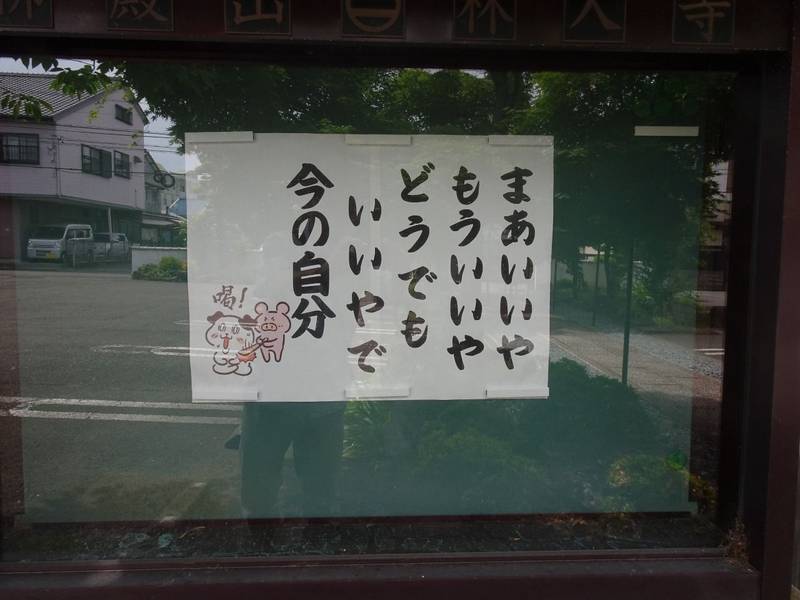 殿山 林入寺
まあいいや
もういいや
どうでも
いいやで
今の自分
喝!